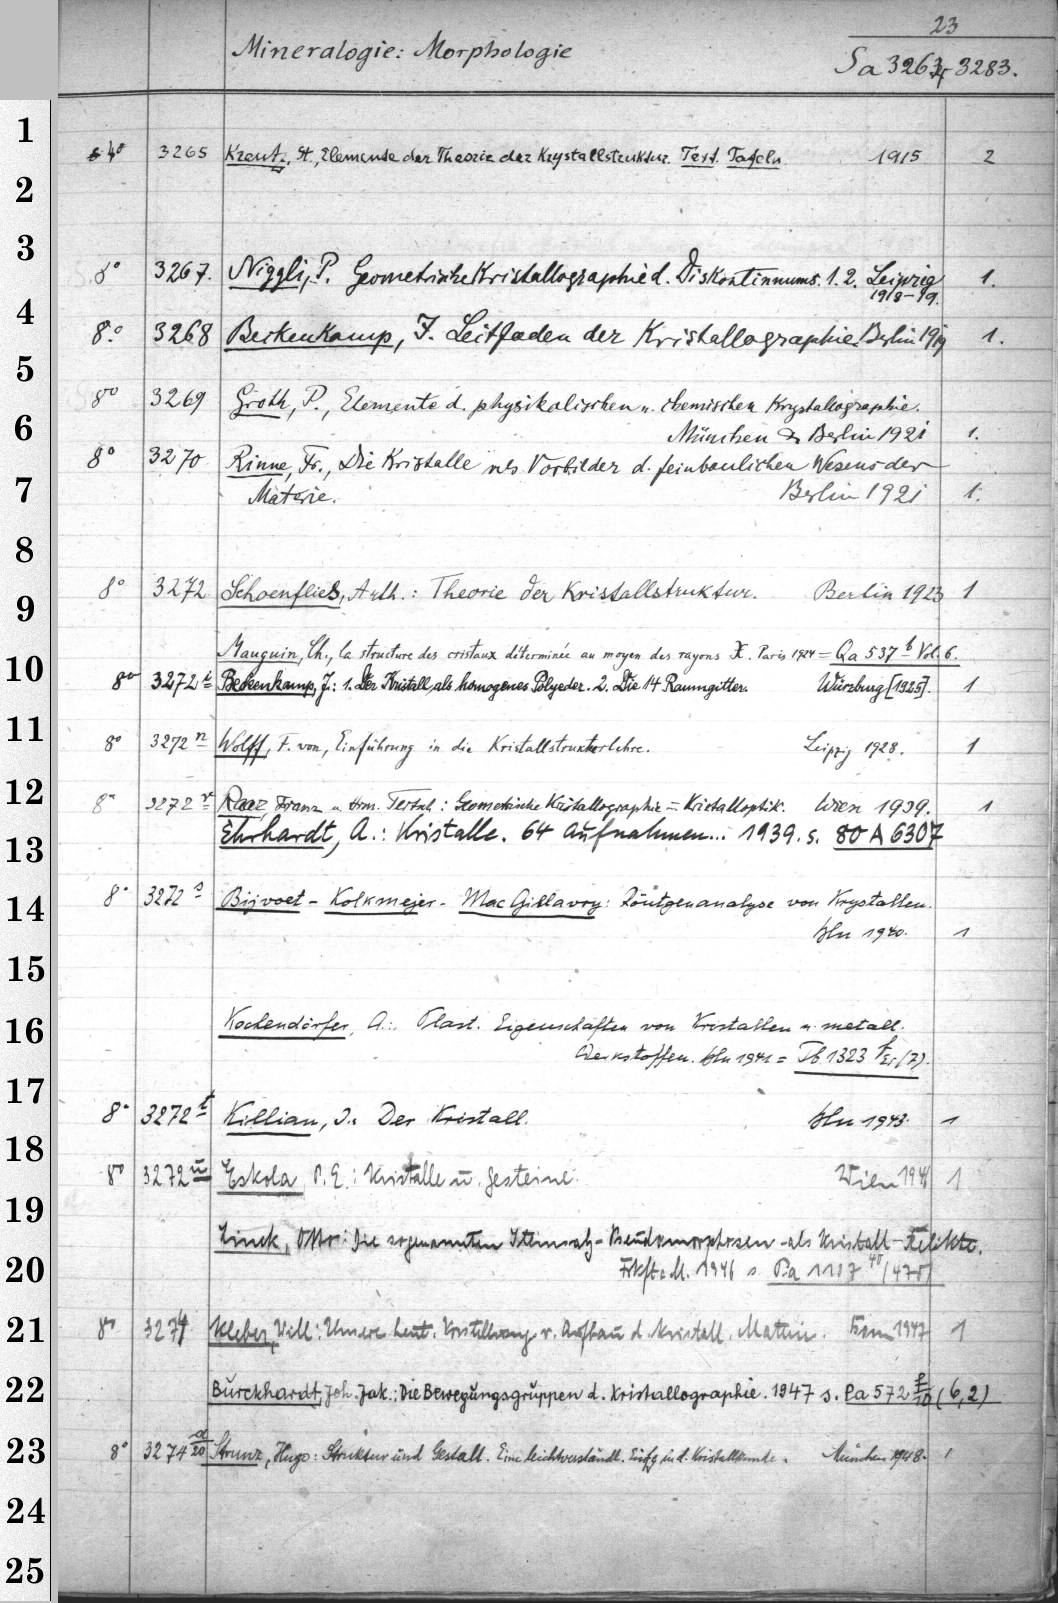 23
Mineralogie: Morphologie
Sa 3263-3283.
1
4° 3265 Kreutz, St., Elemente der Theorie der Krystallstruktur. Text. Tafeln. 1915 2
2
3
8° 3267. Niggli, P. Geometrische Kristallographie d. Diskontinuums. 1. 2. Leipzig 1.
1918-19.
4
8° 3268 Beckenkamp, J. Leitfaden der Kristallographie. Berlin 1919 1.
5
8° 3269 Groth, P., Elemente d. physikalischen u. chemischen Krystallographie.
6
München & Berlin 1921 1.
8° 3270 Rinne, Fr., Die Kristalle als Vorbilder d. feinbaulichen Wesens der
7
Materie. Berlin 1921 1.
8
8° 3272 Schoenflies, Arth.: Theorie der Kristallstruktur. Berlin 1923 1
9
Mauguin, Ch., la structure des cristaux déterminée au moyen des rayons X. Paris 1924 = Qa 537 b Vol. 6.
10
8° 3272 Beckenkamp, J.: 1. Der Kristall als homogenes Polyeder. 2. Die 14 Raumgitter. Würzburg [1925]. 1
11
8° 3272 n Wolff, F. von, Einführung in die Kristallstrukturlehre. Leipzig 1928. 1
12
8° 3272 r Raaz, Franz u. Hrm. Tertsch: Geometrische Kristallographie = Kristalloptik. Wien 1939. 1
Ehrhardt, A.: Kristalle. 64 Aufnahmen... 1939. s. 80 A 6307
13
8° 3272 s Bijvoet - Kolkmejer - Mac Gillavry: Röntgenanalyse von Krystallen.
14
Bln 1940. 1
15
16
Kochendörfer, A.: Plast. Eigenschaften von Kristallen u. metall.
Werkstoffen. Bln 1941 = Tb 1323 (7).
17
8° 3272 t Killian, J.: Der Kristall. Bln 1943. 1
18
8° 3272 u Eskola, P. E.: Kristalle u. Gesteine. Wien 1946 1
19
Linck, Otto: Die sogenannten Steinsalz-Pseudomorphosen als Kristall-Relikte.
20
Frkft a. M. 1946 s. Pa 1117 40 (470)
21
8° 3274 Kleber, Will: Unsere heut. Vorstellung v. Aufbau d. kristall. Materie. 1947 1
22
Burckhardt, Joh. Jak.: Die Bewegungsgruppen d. Kristallographie. 1947 s. Pa 572 f/10 (6,2)
23
8° 3274 d/20 Strunz, Hugo: Struktur und Gestalt. Eine leichtverständl. Einfg in d. Kristallkunde. München 1948. 1
24
25